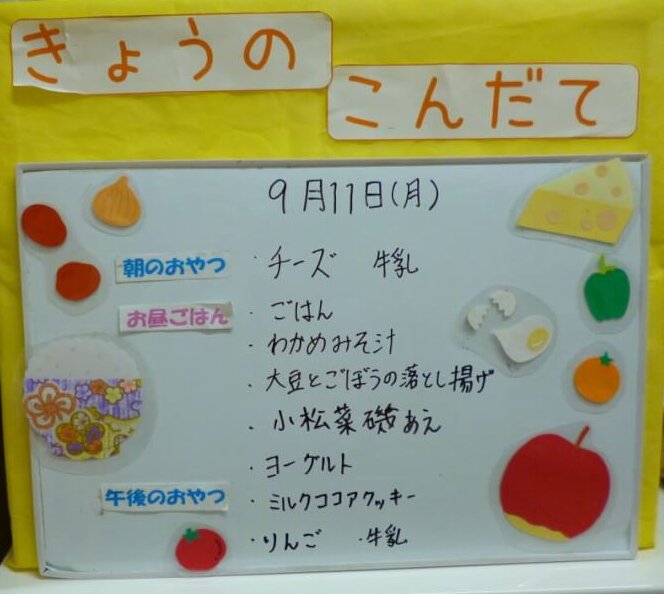 きょうの
こんだて
9月11日(月)
朝のおやつ ・チーズ 牛乳
お昼ごはん ・ごはん
・わかめみそ汁
・大豆とごぼうの落とし揚げ
・小松菜磯あえ
・ヨーグルト
午後のおやつ ・ミルクココアクッキー
・りんご ・牛乳